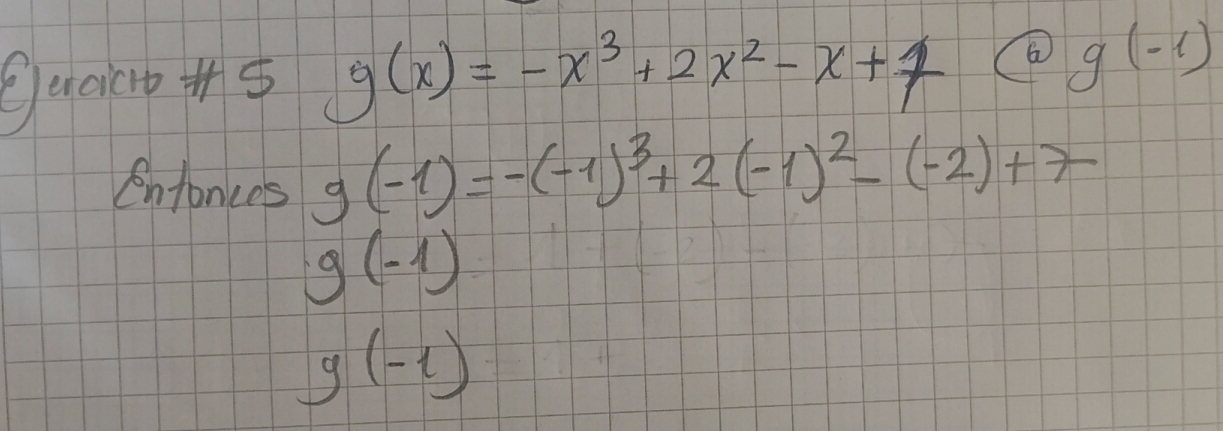 Ejercicio # 5 g(x) = -x³ + 2x² - x + 7 ⓑ g(-1)
Entonces g(-1) = -(-1)³ + 2(-1)² - (-2) + 7
g(-1)
g(-1)